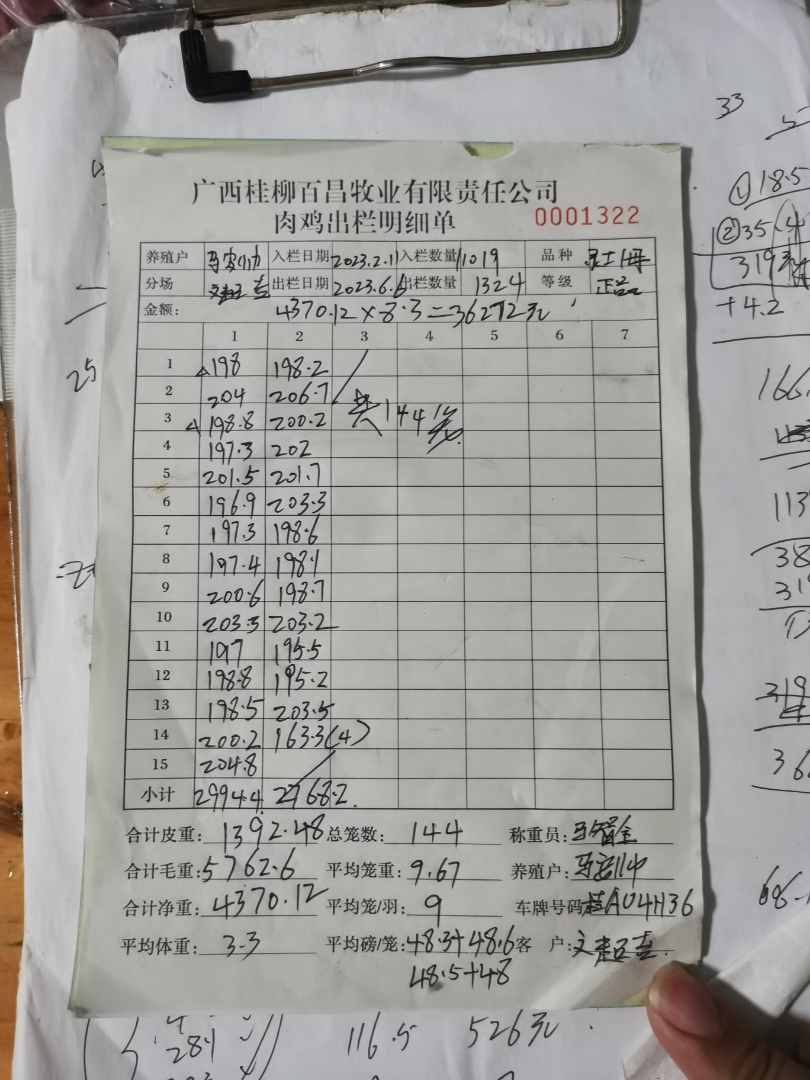 广西桂柳百昌牧业有限责任公司
肉鸡出栏明细单 0001322
养殖户 入栏日期 2023.2.11 入栏数量 11019 品种
分场 出栏日期 2023.6.6 出栏数量 1324 等级 正品
金额: 4370.12×8.3=36272元
1 2 3 4 5 6 7
1 198 198.2
2 204 206.7
3 198.8 200.2 共144笼
4 197.3 202
5 201.5 201.7
6 196.9 203.3
7 197.3 198.6
8 197.4 198.1
9 200.6 198.7
10 203.3 203.2
11 197 195.5
12 198.8 195.2
13 198.5 203.5
14 200.2 163.3(4)
15 204.8
小计 2994.4 2768.2
合计皮重: 1392.48 总笼数: 144 称重员:
合计毛重: 5762.6 平均笼重: 9.67 养殖户:
合计净重: 4370.12 平均笼/羽: 9 车牌号码 桂A04H36
平均体重: 3.3 平均磅/笼: 48.3+48.6 客 户:
48.5+48
33
① 18.5
② 35
319
+4.2
25
116.5 526元
281